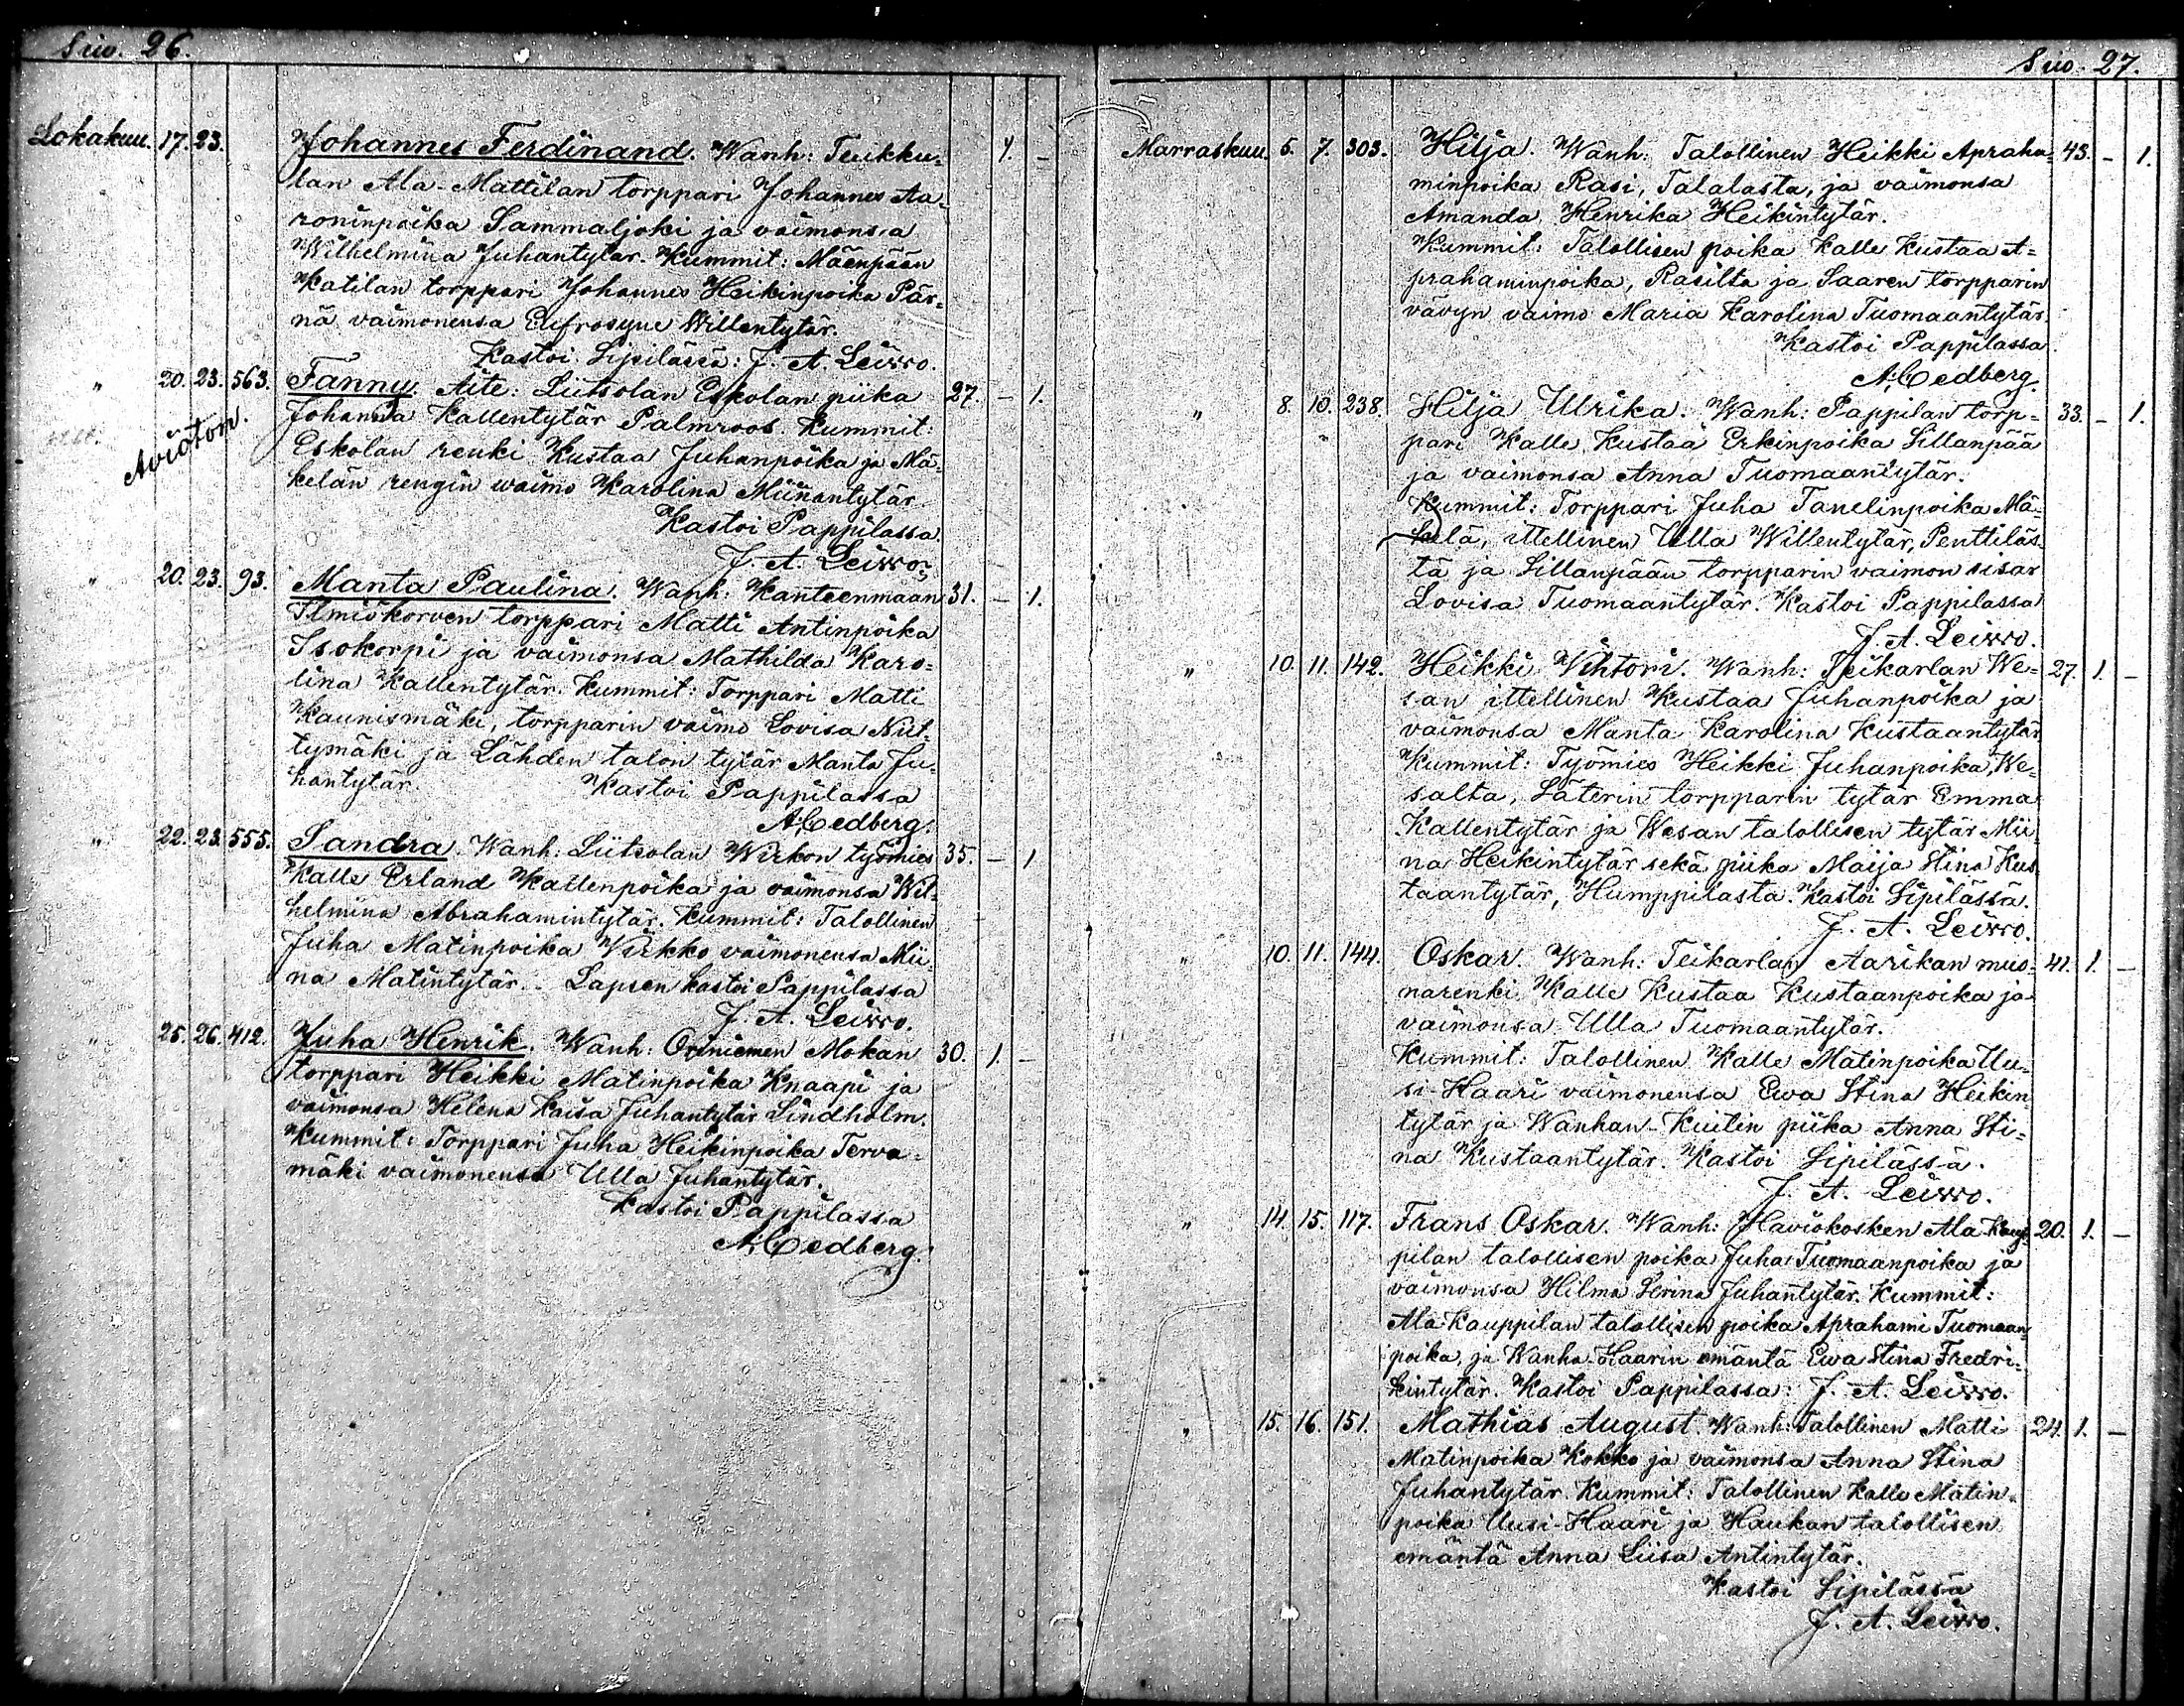 Siw. 26.
Lokakuu. 17. 23. Johannes Ferdinand. Wanh: Teukku= 1. –
lan Ala-Mattilan torppari Johannes Aa=
roninpoika Sammaljoki ja vaimonsa
Wilhelmina Juhantytär. Kummit: Mäenpään
Katilan torppari Johannes Heikinpoika Pär=
nä vaimonensa Eufrosyne Willentytär.
Kastoi Sipilässä: J. A. Leivvo.
" 20. 23. 563. Fanny. Äite: Liitsolan Eskolan piika 27. – 1.
Aviöton.
Johanna Kallentytär Palmroos. Kummit:
Eskolan renki Kustaa Juhanpoika ja Mä=
kelän rengin waimo Karolina Miinantytär.
Kastoi Pappilassa
J. A. Leivvo.
" 20. 23. 93. Manta Paulina. Wanh: Kanteenmaan 31. – 1.
Ilmiökorven torppari Matti Antinpoika
Isokorpi ja vaimonsa Mathilda Karo=
lina Kallentytär. Kummit: Torppari Matti
Kaunismäki, torpparin vaimo Lovisa Niit=
tymäki ja Lähden talon tytär Manta Ju=
hantytär. Kastoi Pappilassa
A. Cedberg.
" 22. 23. 555. Sandra. Wanh: Liitsolan Wirkon työmies 35. – 1
Kalle Erland Kallenpoika ja vaimonsa Wil=
helmina Abrahamintytär. Kummit: Talollinen
Juha Matinpoika Virkko vaimonensa Mii=
na Matintytär. Lapsen kastoi Pappilassa
J. A. Leivvo.
" 25. 26. 412. Juha Henrik. Wanh: Oriniemen Mokan 30. 1. –
torppari Heikki Matinpoika Knaapi ja
vaimonsa Helena Kaisa Juhantytär Lindholm.
Kummit: Torppari Juha Heikinpoika Terva=
mäki vaimonensa Ulla Juhantytär.
Kastoi Pappilassa
A. Cedberg.
Siw. 27.
Marraskuu. 5. 7. 303. Hilja. Wanh: Talollinen Heikki Apraha= 43. – 1.
minpoika Rasi, Talalasta, ja vaimonsa
Amanda Henrika Heikintytär.
Kummit: Talollisen poika Kalle Kustaa A=
prahaminpoika, Rasilta ja Saaren torpparin
vävyn vaimo Maria Karolina Tuomaantytär.
Kastoi Pappilassa
A. Cedberg.
" 8. 10. 238. Hilja Ulrika. Wanh: Pappilan torp= 33. – 1.
pari Kalle Kustaa Erkinpoika Sillanpää
ja vaimonsa Anna Tuomaantytär.
Kummit: Torppari Juha Tanelinpoika Mä=
kelä, ittellinen Ulla Willentytär, Penttiläs=
tä ja Sillanpään torpparin vaimon sisar
Lovisa Tuomaantytär. Kastoi Pappilassa
J. A. Leivvo.
" 10. 11. 142. Heikki Vihtori. Wanh: Teikarlan We= 27. 1. –
san ittellinen Kustaa Juhanpoika ja
vaimonsa Manta Karolina Kustaantytär
Kummit: Työmies Heikki Juhanpoika, We=
salta, Säterin torpparin tytär Emma
Kallentytär ja Wesan talollisen tytär Mii=
na Heikintytär sekä piika Maija Stina Kus=
taantytär, Humppilasta. Kastoi Sipilässä.
J. A. Leivvo.
" 10. 11. 144. Oskar. Wanh: Teikarlan Aarikan muo= 41. 1. –
narenki Kalle Kustaa Kustaanpoika ja
vaimonsa Ulla Tuomaantytär.
Kummit: Talollinen Kalle Matinpoika Uu=
si-Haari vaimonensa Ewa Stina Heikin
tytär ja Wanhan-Kuitin piika Anna Sti=
na Kustaantytär. Kastoi Sipilässä.
J. A. Leivvo.
" 14. 15. 117. Frans Oskar. Wanh: Haviokosken Ala Kaup= 20. 1. –
pilan talollisen poika Juha Tuomaanpoika ja
vaimonsa Hilma Serina Juhantytär. Kummit:
Ala-Kauppilan talollisen poika Aprahami Tuomaan=
poika, ja Wanha-Haarin emäntä Ewa Stina Fredri=
kintytär. Kastoi Pappilassa: J. A. Leivvo.
" 15. 16. 151. Mathias August. Wanh: Talollinen Matti 24. 1. –
Matinpoika Kokko ja vaimonsa Anna Stina
Juhantytär. Kummit: Talollinen Kalle Matin=
poika Uusi-Haari ja Haukan talollisen
emäntä Anna Liisa Antintytär.
Kastoi Sipilässä
J. A. Leivvo.